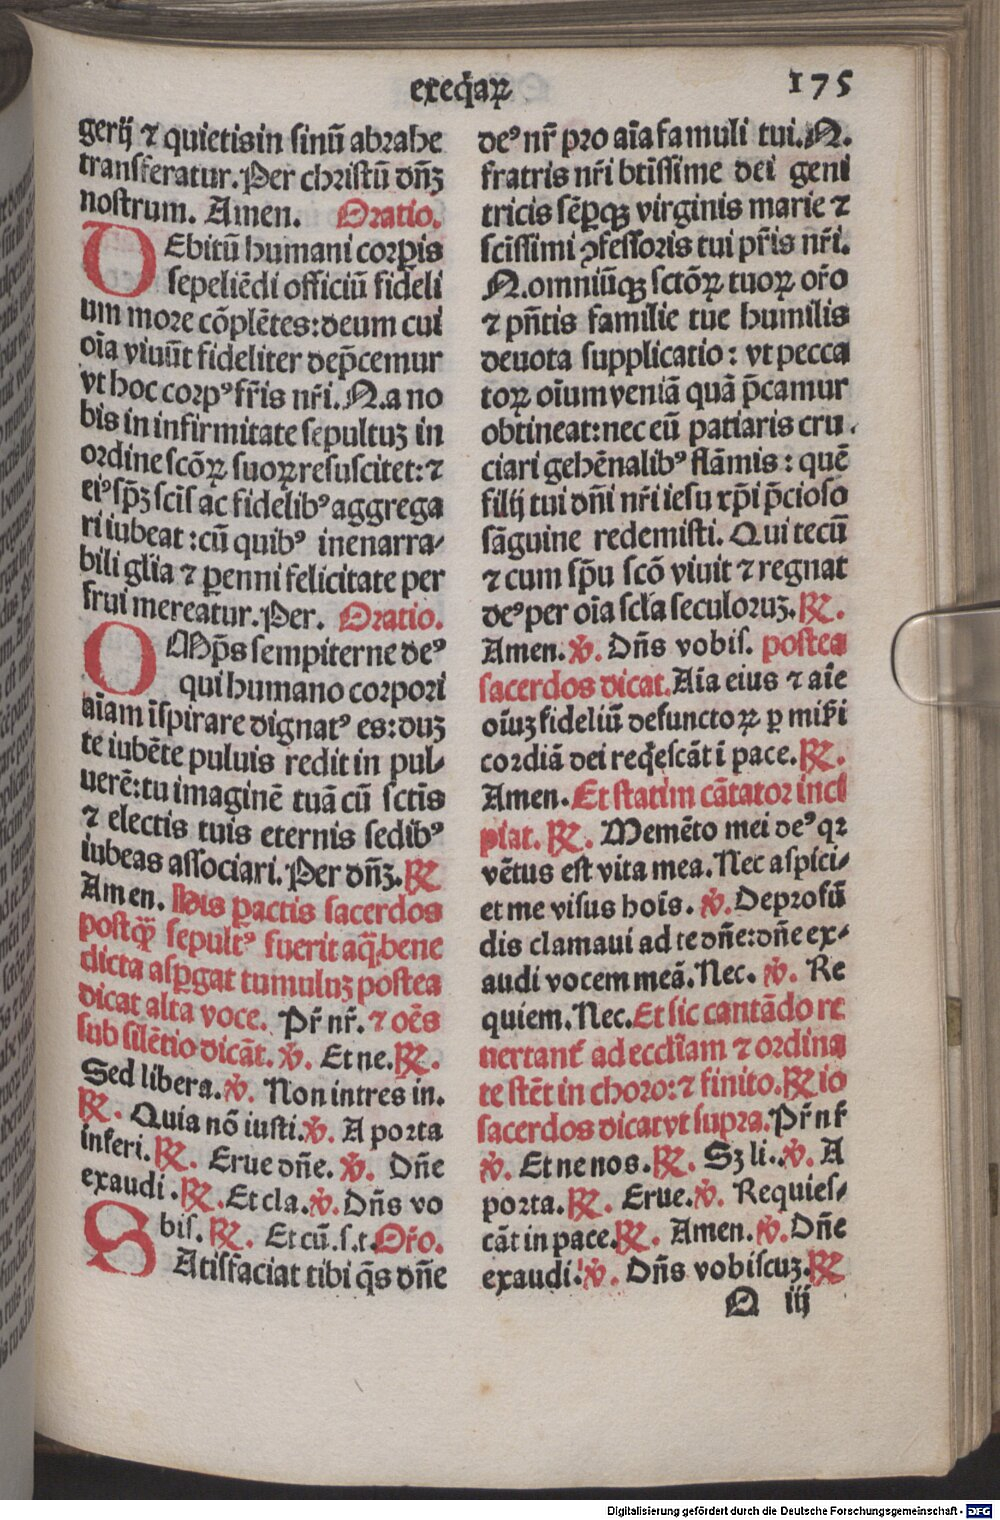 exeq̃aꝝ 175
gerij ⁊ quietis in sinũ abrahe
transferatur. Per christũ dñʒ
nostrum. Amen. Oratio.
DEbitũ humani corpis
sepeliẽdi officiũ fideli
um more cõplẽtes: deum cui
oĩa viuũt fideliter dep̃cemur
vt hoc corpꝰ fr̃is nr̃i. N. a no
bis in infirmitate sepultuʒ in
ordine scõꝝ suoꝝ resuscitet: ⁊
eiꝰ sp̃ʒ scĩs ac fidelibꝰ aggrega
ri iubeat: cũ quibꝰ inenarra⸗
bili gl̃ia ⁊ ꝑenni felicitate per
frui mereatur. Per. Oratio.
OMp̃s sempiterne deꝰ
qui humano corpori
aĩam ĩspirare dignatꝰ es: duʒ
te iubẽte puluis redit in pul⸗
uerẽ: tu imaginẽ tuã cũ sctĩs
⁊ electis tuis eternis sedibꝰ
iubeas associari. Per dñʒ. ℟
Amen. His ꝑactis sacerdos
postq̃ꝫ sepultꝰ fuerit aq̃ bene
dicta aspgat tumuluʒ postea
dicat alta voce. Pr̃ nr̃. ⁊ oẽs
sub silẽtio dicãt. ℣. Et ne. ℟.
Sed libera. ℣. Non intres in.
℟. Quia nõ iusti. ℣. A porta
inferi. ℟. Erue dñe. ℣. Dñe
exaudi. ℟. Et cla. ℣. Dñs vo
bis. ℟. Et cũ. s. t. Or̃o.
SAtisfaciat tibi q̃s dñe
deꝰ nr̃ pro aĩa famuli tui. N.
fratris nr̃i btĩssime dei geni
tricis sẽꝑqꝫ virginis marie ⁊
scĩssimi ꝯfessoris tui pr̃is nr̃i.
N. omniũqꝫ sctõꝝ tuoꝝ or̃o
⁊ pñtis familie tue humilis
deuota supplicatio: vt pecca
toꝝ oĩum veniã quã p̃camur
obtineat: nec eũ patiaris cru⸗
ciari gehẽnalibꝰ flãmis: quẽ
filij tui dñi nr̃i iesu xp̃i p̃cioso
sãguine redemisti. Qui tecũ
⁊ cum sp̃u scõ viuit ⁊ regnat
deꝰ per oĩa scl̃a seculoruʒ. ℟.
Amen. ℣. Dñs vobis. postea
sacerdos dicat. Aĩa eius ⁊ aĩe
oĩuʒ fideliũ defunctoꝝ ꝑ mis̃i
cordiã dei req̃escãt ĩ pace. ℟.
Amen. Et statim cãtator inci
piat. ℟. Memẽto mei deꝰ qꝛ
vẽtus est vita mea. Nec aspici⸗
et me visus hoĩs. ℣. De profũ
dis clamaui ad te dñe: dñe ex⸗
audi vocem meã. Nec. ℣. Re
quiem. Nec. Et sic cantãdo re
uertant̃ ad eccl̃iam ⁊ ordina
te stẽt in choro: ⁊ finito. ℟io
sacerdos dicat vt supra. Pr̃ nr̃
℣. Et ne nos. ℟. Sʒ li. ℣. A
porta. ℟. Erue. ℣. Requies⸗
cãt in pace. ℟. Amen. ℣. Dñe
exaudi. ℣. Dñs vobiscuʒ. ℟
Q iij
Digitalisierung gefördert durch die Deutsche Forschungsgemeinschaft - DFG